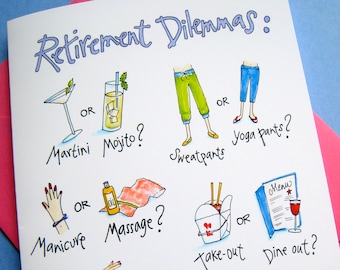 Retirement Dilemmas:
OR
Martini Mojito?
OR
Sweatpants Yoga pants?
OR
Manicure Massage?
OR
Menu
Take-out Dine out?